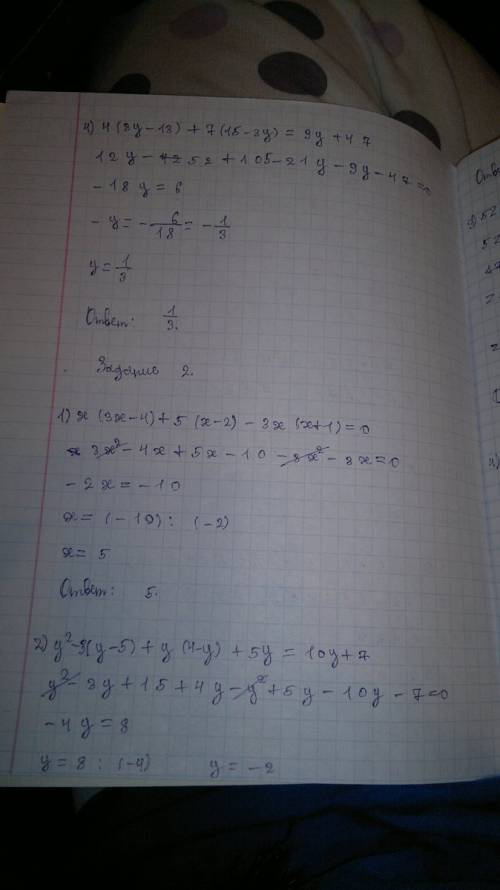 4) 4(3y-13)+7(15-3y)=9y+47
12y-52+105-21y-9y-47=0
-18y=6
-y=-6/18=-1/3
y=1/3
Ответ: 1/3.
Задание 2.
Отве
1) x(3x-4)+5(x-2)-3x(x+1)=0
3x²-4x+5x-10-3x²-3x=0
-2x=-10
x=(-10):(-2)
x=5
Ответ: 5.
2) y²-3(y-5)+y(4-y)+5y=10y+7
y²-3y+15+4y-y²+5y-10y-7=0
-4y=8
y=8:(-4) y=-2